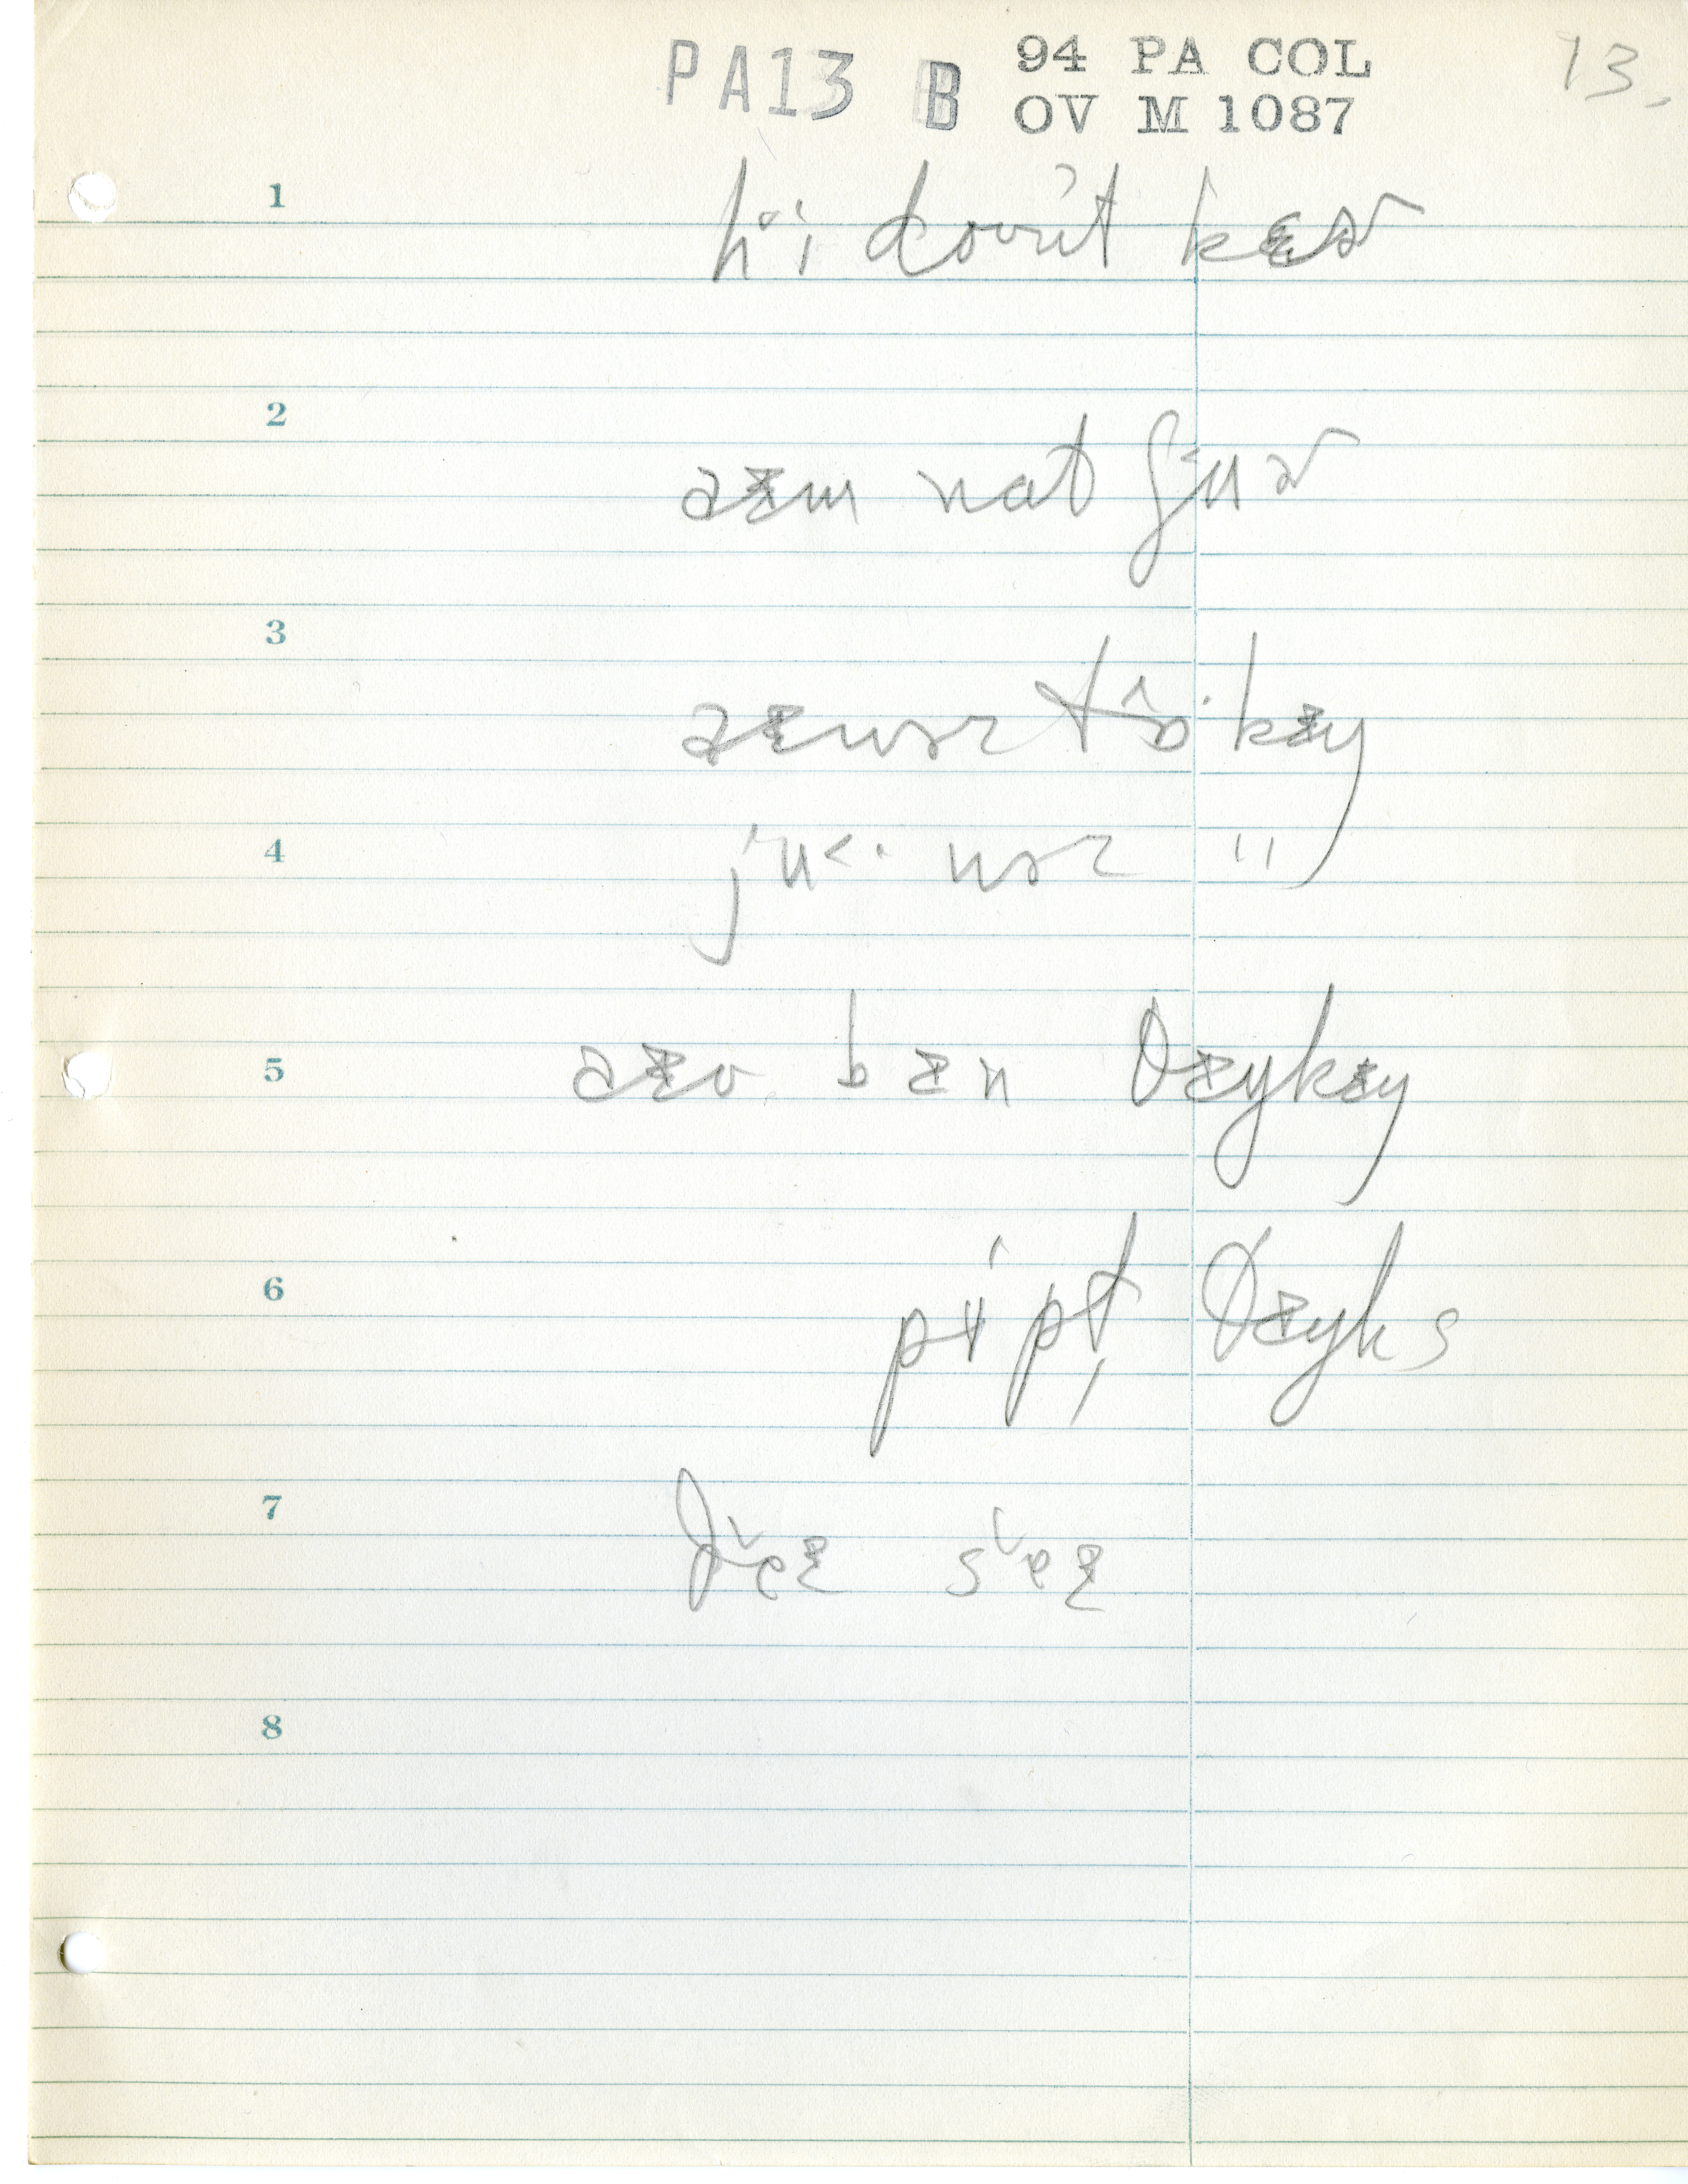 PA13 B 94 PA COL 13.
OV M 1087
1 hɨi doʊnt kɛɚ
2 aɪm nat ʃuɚ
3 aɪ wəz tɔkɪŋ
4 ju wəz "
5 aɪv bɪn θɪŋkɪŋ
6 pipl̩ θɪŋks
7 ðeɪ seɪ
8